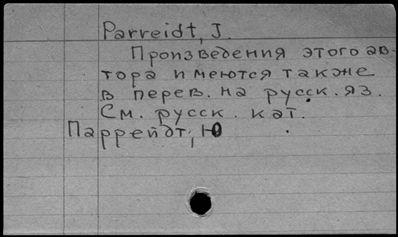 Parreidt, J.
Произведения этого ав-
тора имеются также
в перев. на русск. яз.
См. русск. кат.
Паррейдт, Ю